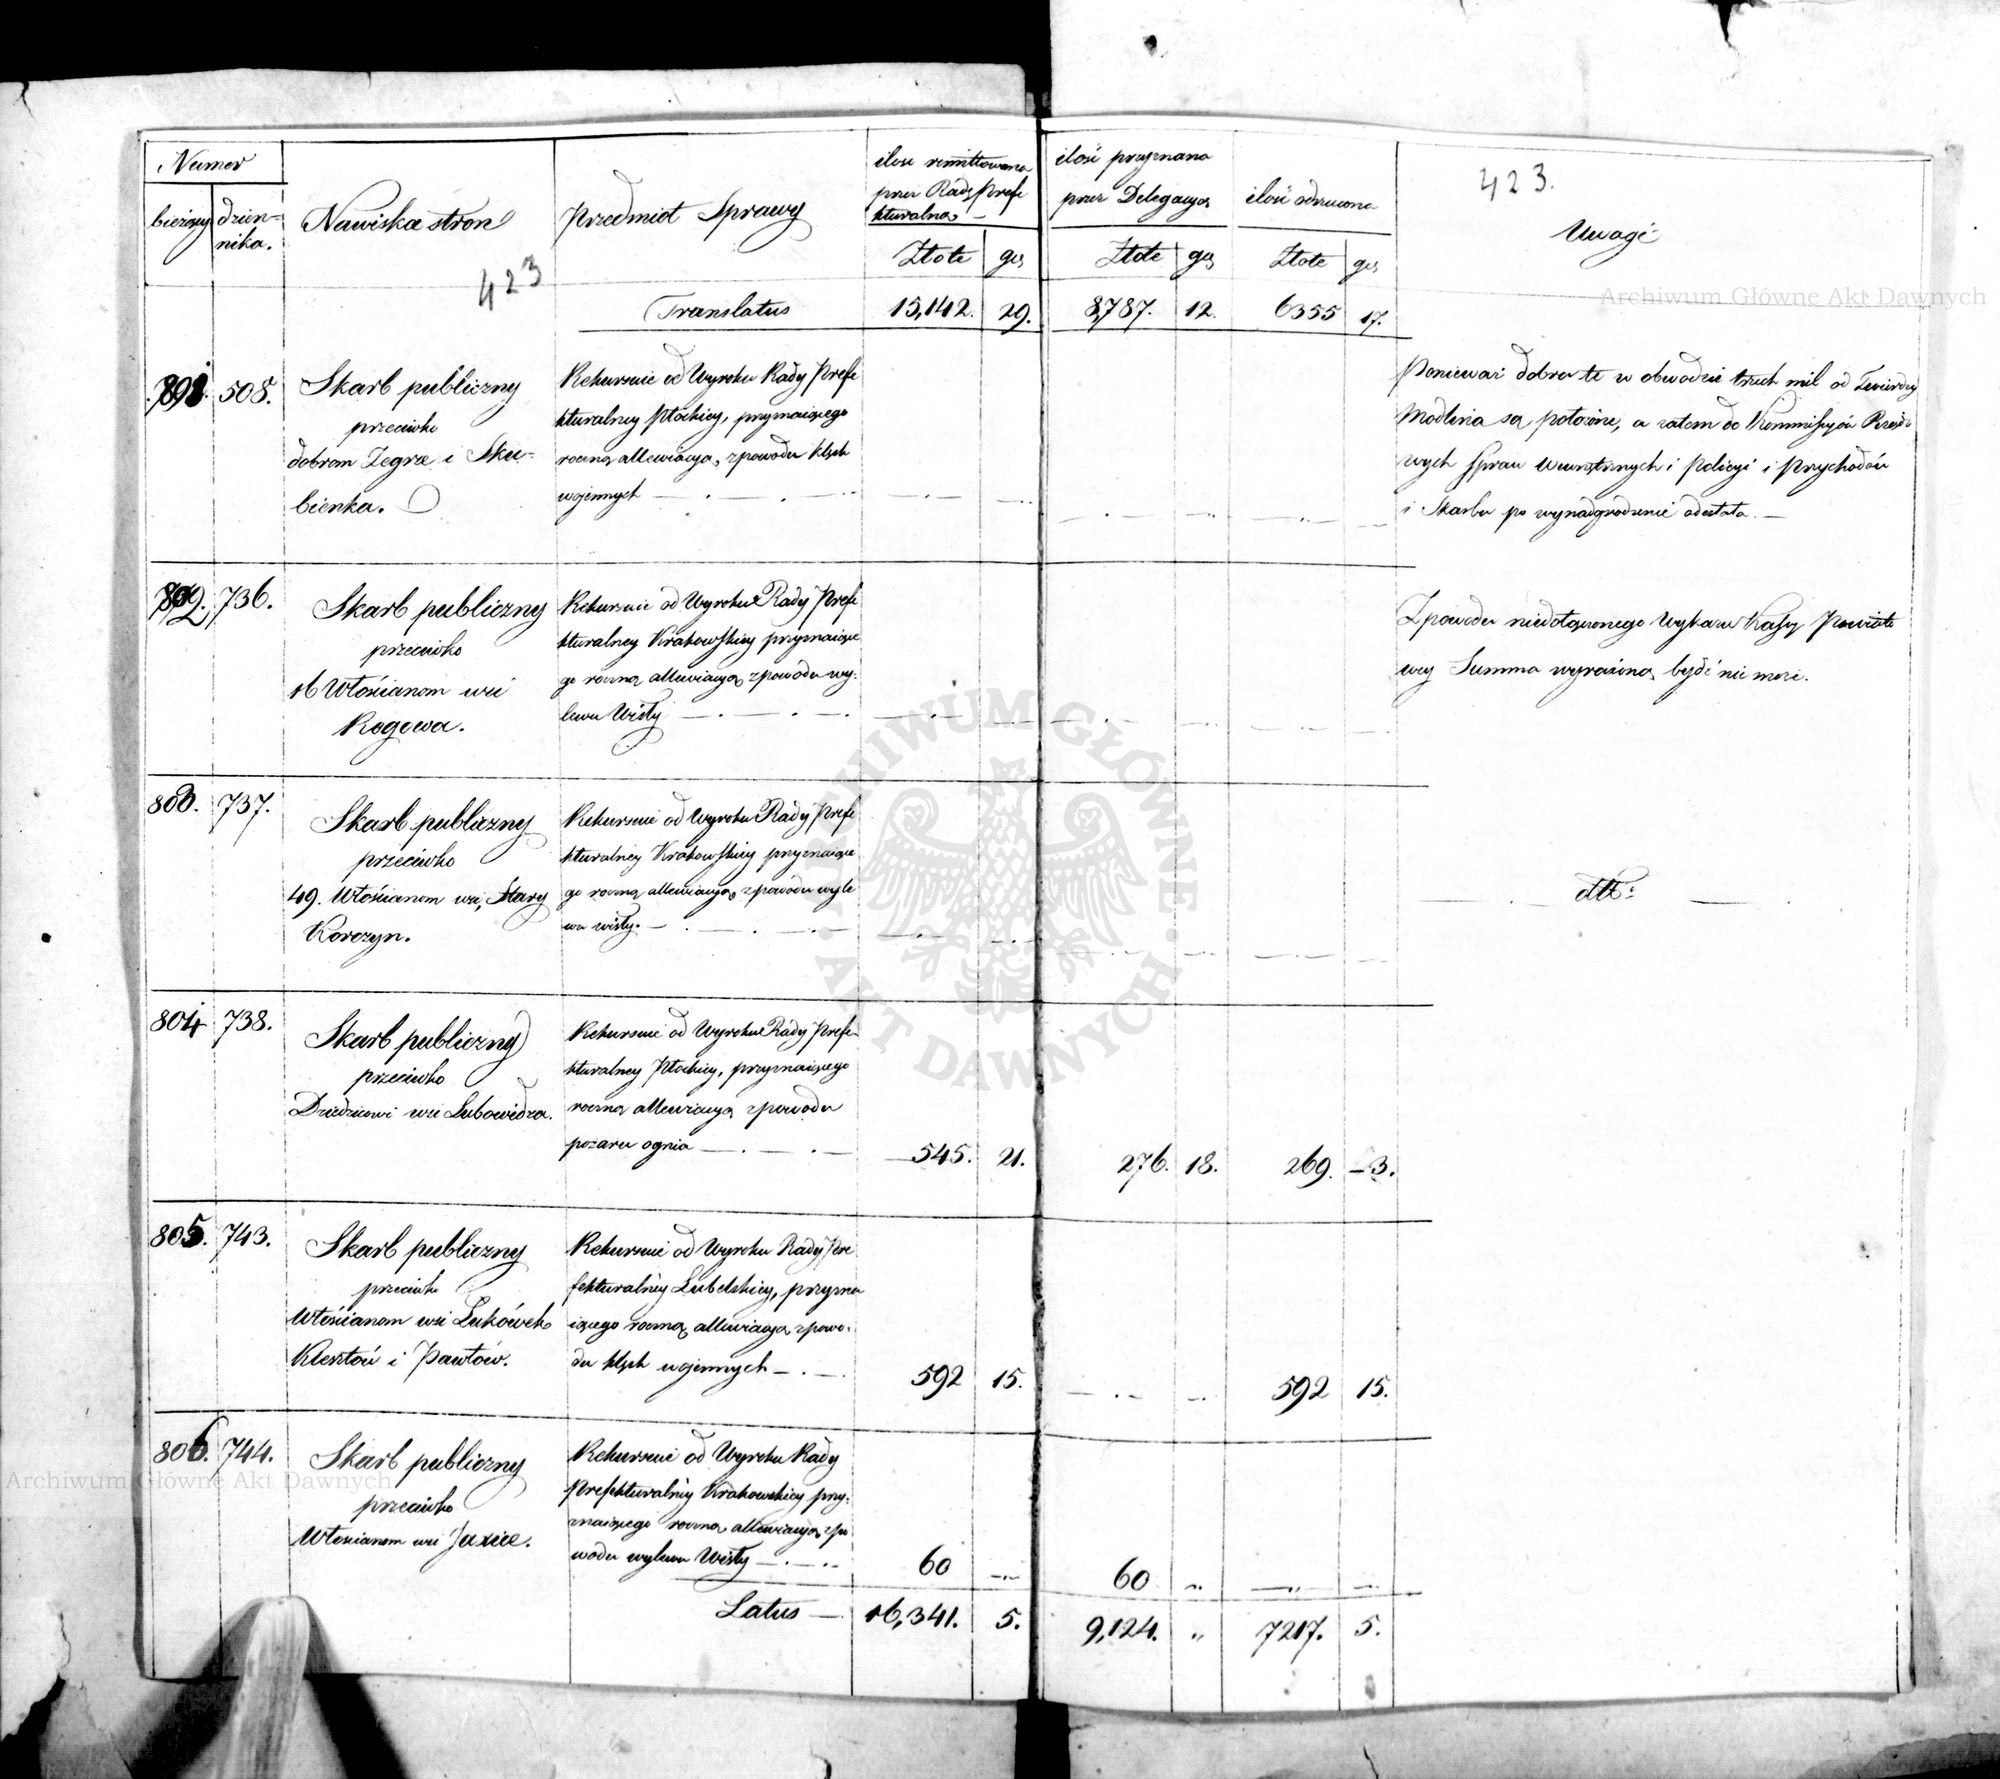 Numer
bieżący
dzien=
nika.
Nazwiska stron
423
Przedmiot Sprawy
ilosc remittowana
przez Radę Prefe
kturalną —
Złote
gr.
ilość przyznana
przez Delegacyą
Złote
gr.
ilość odrzucona
Złote
gr.
423.
Uwagi
Translatus
15,142. 29. 8,787. 12. 6355 17.
801. 508.
Skarb publiczny
przeciwko
dobrom Zegrze i Sku=
bienka.
Rekursuie od Wyroku Rady Prefe
kturalney Płockiey, przyznaiącego
roczną allewiacyą, z powodu klęsk
wojennych
Ponieważ dobra te w obwodzie trzech mil od Twierdzy
Modlina są położone, a zatem do Kommissyów Rządo
wych Spraw Wewnętrznych i Policyi i Przychodów
i Skarbu po wynadgrodzenie odesłała. —
802. 736.
Skarb publiczny
przeciwko
16 Włościanom wsi
Rogowa.
Rekursuie od Wyroku Rady Prefe
kturalney Krakowskiey przyznaiące
go roczną allewiacyą z powodu wy=
lewu Wisły
Z powodu niedołączonego Wykazu Kassy Powiato
wey Summa wyrażoną bydź nie może.
803. 737.
Skarb publiczny
przeciwko
49. Włościanom wsi, Stary
Korczyn.
Rekursuie od Wyroku Rady Prefe
kturalney Krakowskiey przyznaiące
go roczną allewiacyą z powodu wyle
wu wisły. —
dtto
804 738.
Skarb publiczny
przeciwko
Dziedzicowi wsi Lubowidza.
Rekursuie od Wyroku Rady Prefe-
kturalney Płockiey, przyznaiącego
roczną allewiacyą z powodu
pożaru ognia
545. 21. 276. 18. 269. — 3.
805. 743.
Skarb publiczny
przeciwko
Włościanom wsi Lukówek
Klesztów i Pawłów.
Rekursuie od Wyroku Rady Pre
fekturalney Lubelskiey, przyzna
iącego roczną allewiacyą z powo=
du klęsk wojennych
592 15. 592 15.
806. 744.
Skarb publiczny
przeciwko
Włoscianom wsi Jaxice.
Rekursuie od Wyroku Rady
Prefekturalney Krakowskiey przy=
znaiącego roczną allewiacyą z po
wodu wylewu Wisły
60 60
Latus — 16,341. 5. 9,124. „ 7217. 5.
Archiwum Główne Akt Dawnych
Archiwum Główne Akt Dawnych
ARCHIWUM GŁÓWNE AKT DAWNYCH